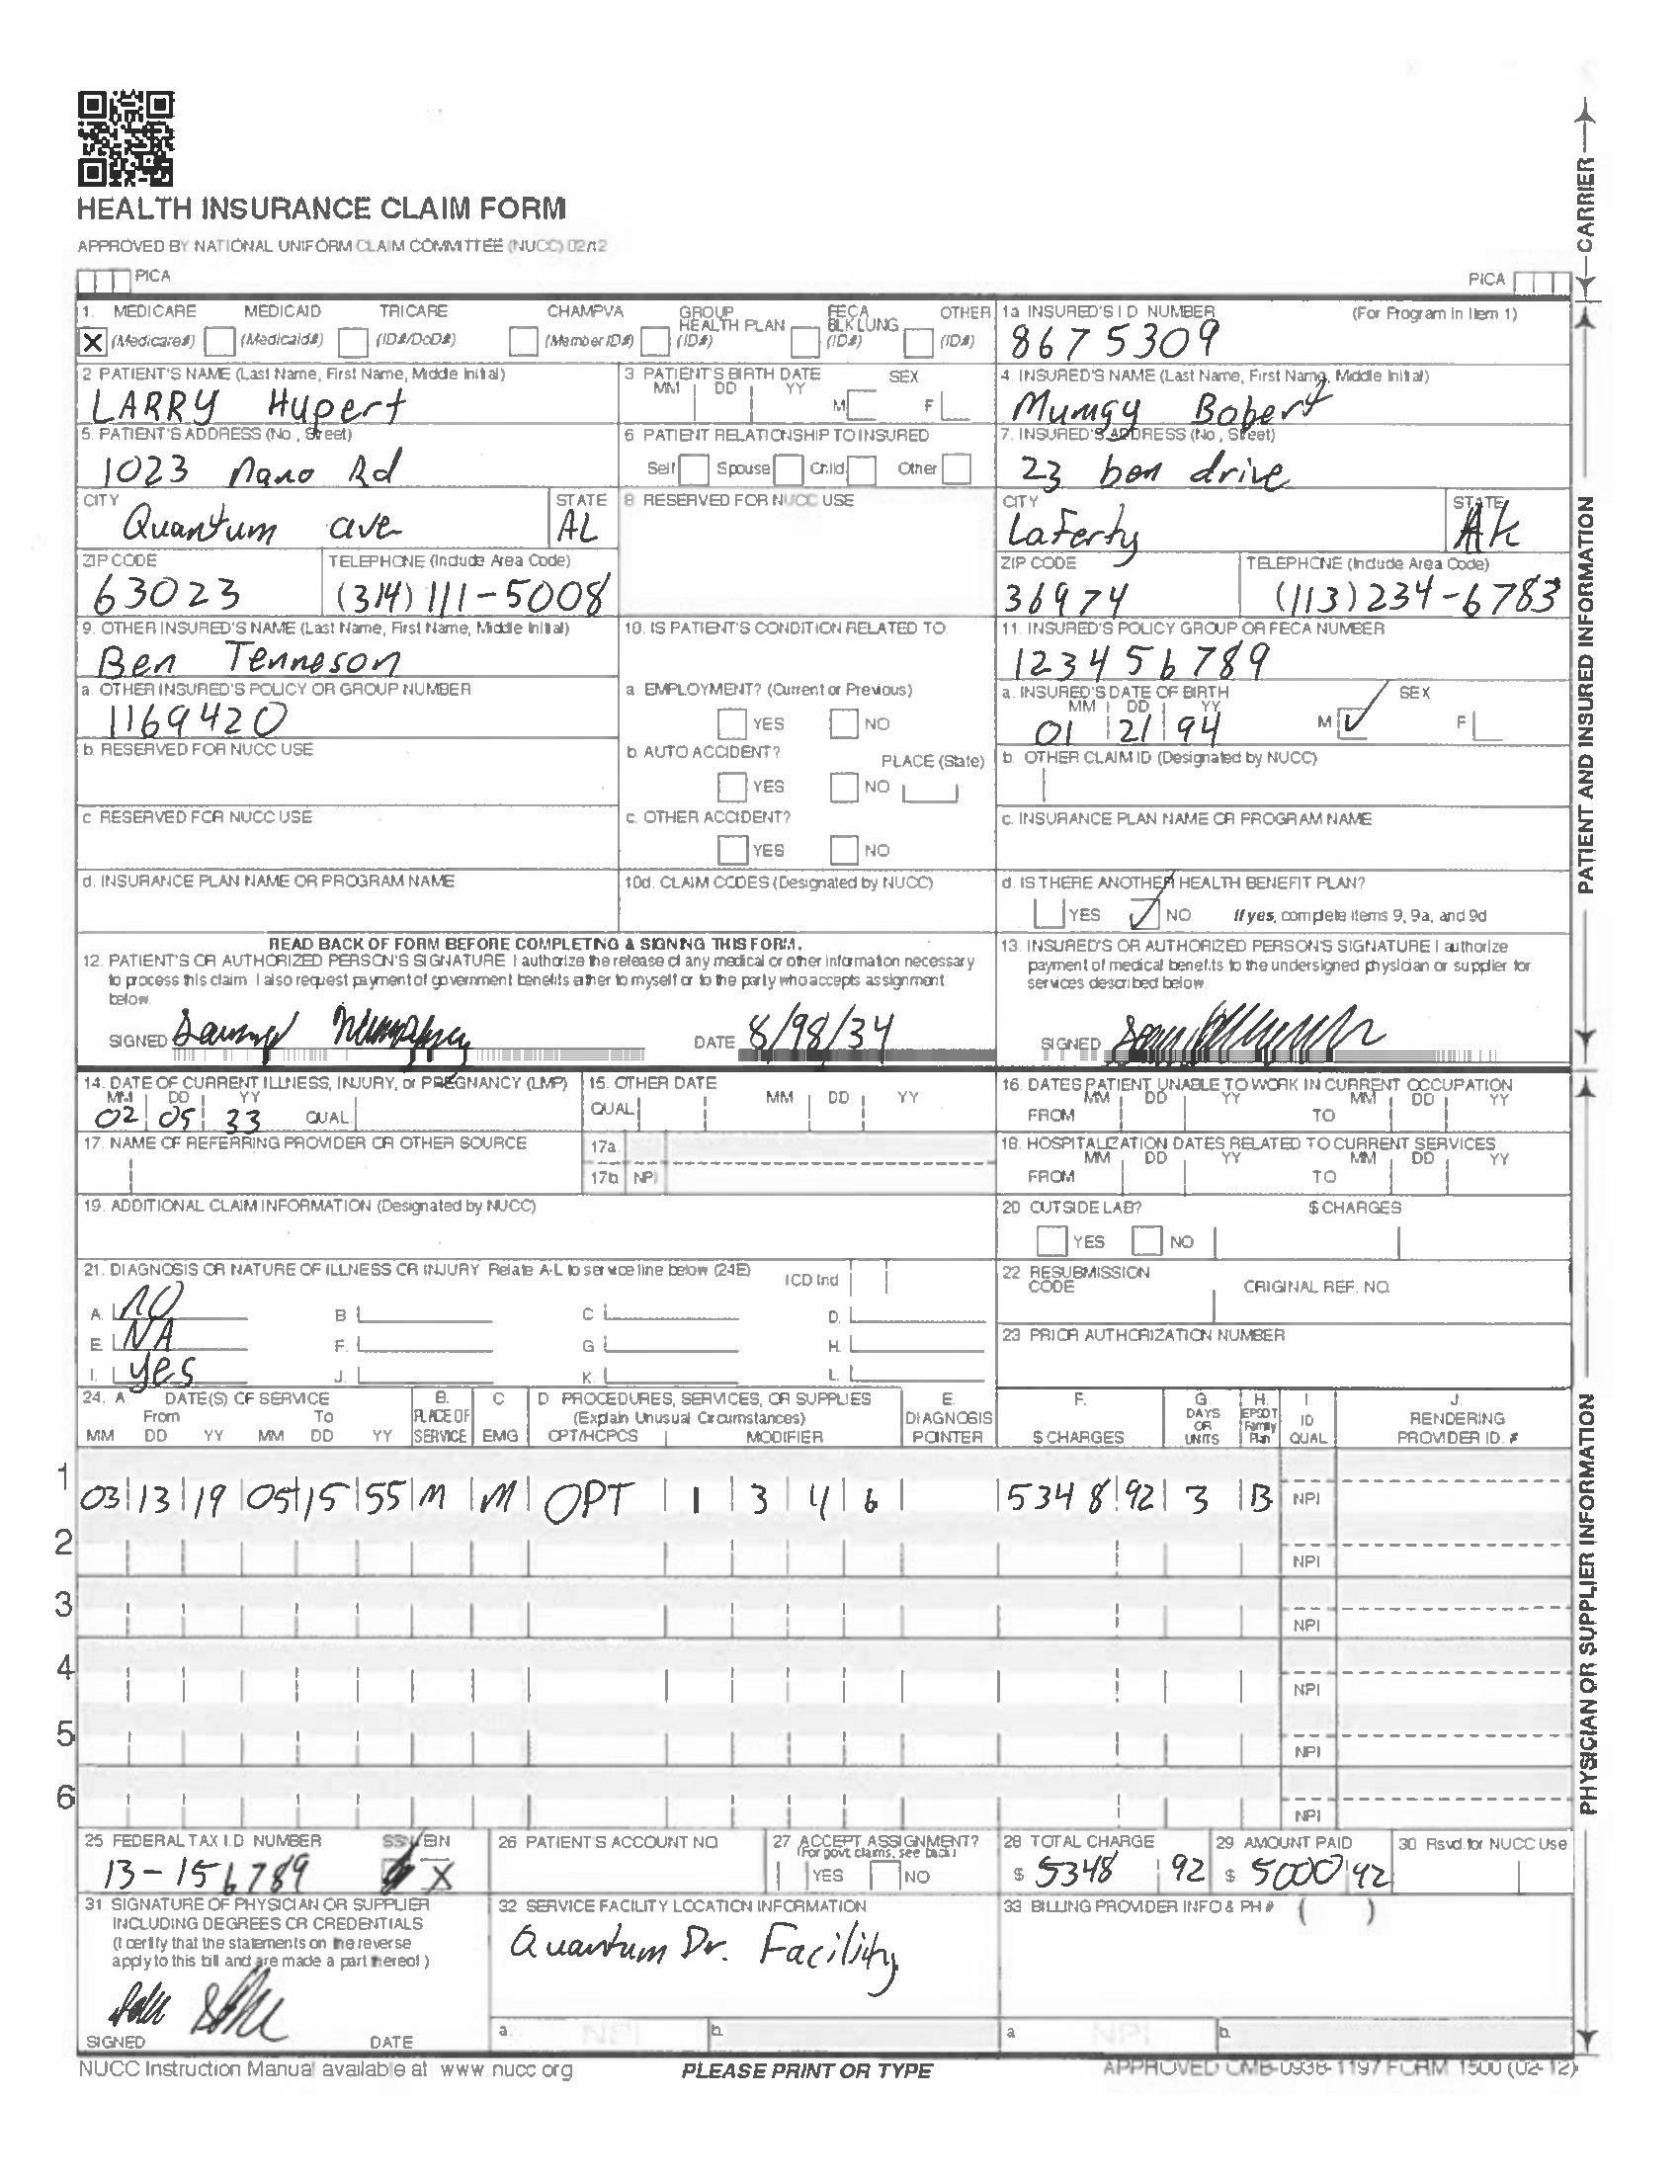 HEALTH INSURANCE CLAIM FORM
APPROVED BY NATIONAL UNIFORM CLAIM COMMITTEE (NUCC) 02/12
PICA
PICA
CARRIER
1. MEDICARE MEDICAID TRICARE CHAMPVA GROUP HEALTH PLAN FECA BLK LUNG OTHER
X (Medicare#) (Medicaid#) (ID#/DoD#) (Member ID#) (ID#) (ID#) (ID#)
1a INSURED'S I D NUMBER (For Program in Item 1)
8675309
2 PATIENT'S NAME (Last Name, First Name, Middle Initial)
LARRY Hupert
3 PATIENT'S BIRTH DATE SEX
MM DD YY M F
4. INSURED'S NAME (Last Name, First Name, Middle Initial)
Mumgy Bobert
5. PATIENT'S ADDRESS (No , Street)
1023 nano Rd
6 PATIENT RELATIONSHIP TO INSURED
Self Spouse Child Other
7. INSURED'S ADDRESS (No , Street)
23 ben drive
CITY STATE
Quantum ave AL
8 RESERVED FOR NUCC USE
CITY STATE
Laferty AK
ZIP CODE TELEPHONE (Include Area Code)
63023 (314) 111-5008
ZIP CODE TELEPHONE (Include Area Code)
36974 (113) 234-6783
9. OTHER INSURED'S NAME (Last Name, First Name, Middle Initial)
Ben Tenneson
10. IS PATIENT'S CONDITION RELATED TO.
11. INSURED'S POLICY GROUP OR FECA NUMBER
123456789
a. OTHER INSURED'S POLICY OR GROUP NUMBER
1169420
a. EMPLOYMENT? (Current or Previous)
YES NO
a. INSURED'S DATE OF BIRTH SEX
MM DD YY
01 21 94 M F
b. RESERVED FOR NUCC USE
b AUTO ACCIDENT? PLACE (State)
YES NO
b. OTHER CLAIM ID (Designated by NUCC)
c RESERVED FOR NUCC USE
c. OTHER ACCIDENT?
YES NO
c. INSURANCE PLAN NAME OR PROGRAM NAME
d. INSURANCE PLAN NAME OR PROGRAM NAME
10d. CLAIM CODES (Designated by NUCC)
d. IS THERE ANOTHER HEALTH BENEFIT PLAN?
YES NO If yes, complete items 9, 9a, and 9d
READ BACK OF FORM BEFORE COMPLETING & SIGNING THIS FORM.
12. PATIENT'S OR AUTHORIZED PERSON'S SIGNATURE I authorize the release of any medical or other information necessary
to process this claim I also request payment of government benefits either to myself or to the party who accepts assignment
below.
SIGNED DATE 8/98/34
13. INSURED'S OR AUTHORIZED PERSON'S SIGNATURE I authorize
payment of medical benefits to the undersigned physician or supplier for
services described below.
SIGNED
PATIENT AND INSURED INFORMATION
14. DATE OF CURRENT ILLNESS, INJURY, or PREGNANCY (LMP)
MM DD YY
02 05 33 QUAL
15. OTHER DATE
QUAL MM DD YY
16. DATES PATIENT UNABLE TO WORK IN CURRENT OCCUPATION
MM DD YY MM DD YY
FROM TO
17. NAME OF REFERRING PROVIDER OR OTHER SOURCE
17a.
17b NPI
18. HOSPITALIZATION DATES RELATED TO CURRENT SERVICES
MM DD YY MM DD YY
FROM TO
19. ADDITIONAL CLAIM INFORMATION (Designated by NUCC)
20 OUTSIDE LAB? $ CHARGES
YES NO
21. DIAGNOSIS OR NATURE OF ILLNESS OR INJURY Relate A-L to service line below (24E) ICD Ind
A. NO B C D.
E NA F. G H.
I. yes J. K. L.
22 RESUBMISSION CODE ORIGINAL REF. NO.
23 PRIOR AUTHORIZATION NUMBER
24. A. DATE(S) OF SERVICE B. C D PROCEDURES, SERVICES, OR SUPPLIES E. F. G. H. I. J.
From To PLACE OF (Explain Unusual Circumstances) DIAGNOSIS DAYS OR EPSDT Family ID RENDERING
MM DD YY MM DD YY SERVICE EMG CPT/HCPCS MODIFIER POINTER $ CHARGES UNITS Plan QUAL PROVIDER ID. #
1 03 13 19 05 15 55 M M OPT 1 3 4 6 5348 92 3 B NPI
2 NPI
3 NPI
4 NPI
5 NPI
6 NPI
25 FEDERAL TAX I.D NUMBER SSN EIN
13-156789 X
26 PATIENT'S ACCOUNT NO.
27 ACCEPT ASSIGNMENT?
(For govt claims, see back)
YES NO
28 TOTAL CHARGE
$ 5348 92
29 AMOUNT PAID
$ 5000 42
30 Rsvd. for NUCC Use
31 SIGNATURE OF PHYSICIAN OR SUPPLIER
INCLUDING DEGREES OR CREDENTIALS
(I certify that the statements on the reverse
apply to this bill and are made a part thereof )
SIGNED DATE
32 SERVICE FACILITY LOCATION INFORMATION
Quantum Dr. Facility
a. NPI b.
33 BILLING PROVIDER INFO & PH # ( )
a NPI b.
PHYSICIAN OR SUPPLIER INFORMATION
NUCC Instruction Manual available at www nucc org
PLEASE PRINT OR TYPE
APPROVED OMB-0938-1197 FORM 1500 (02-12)